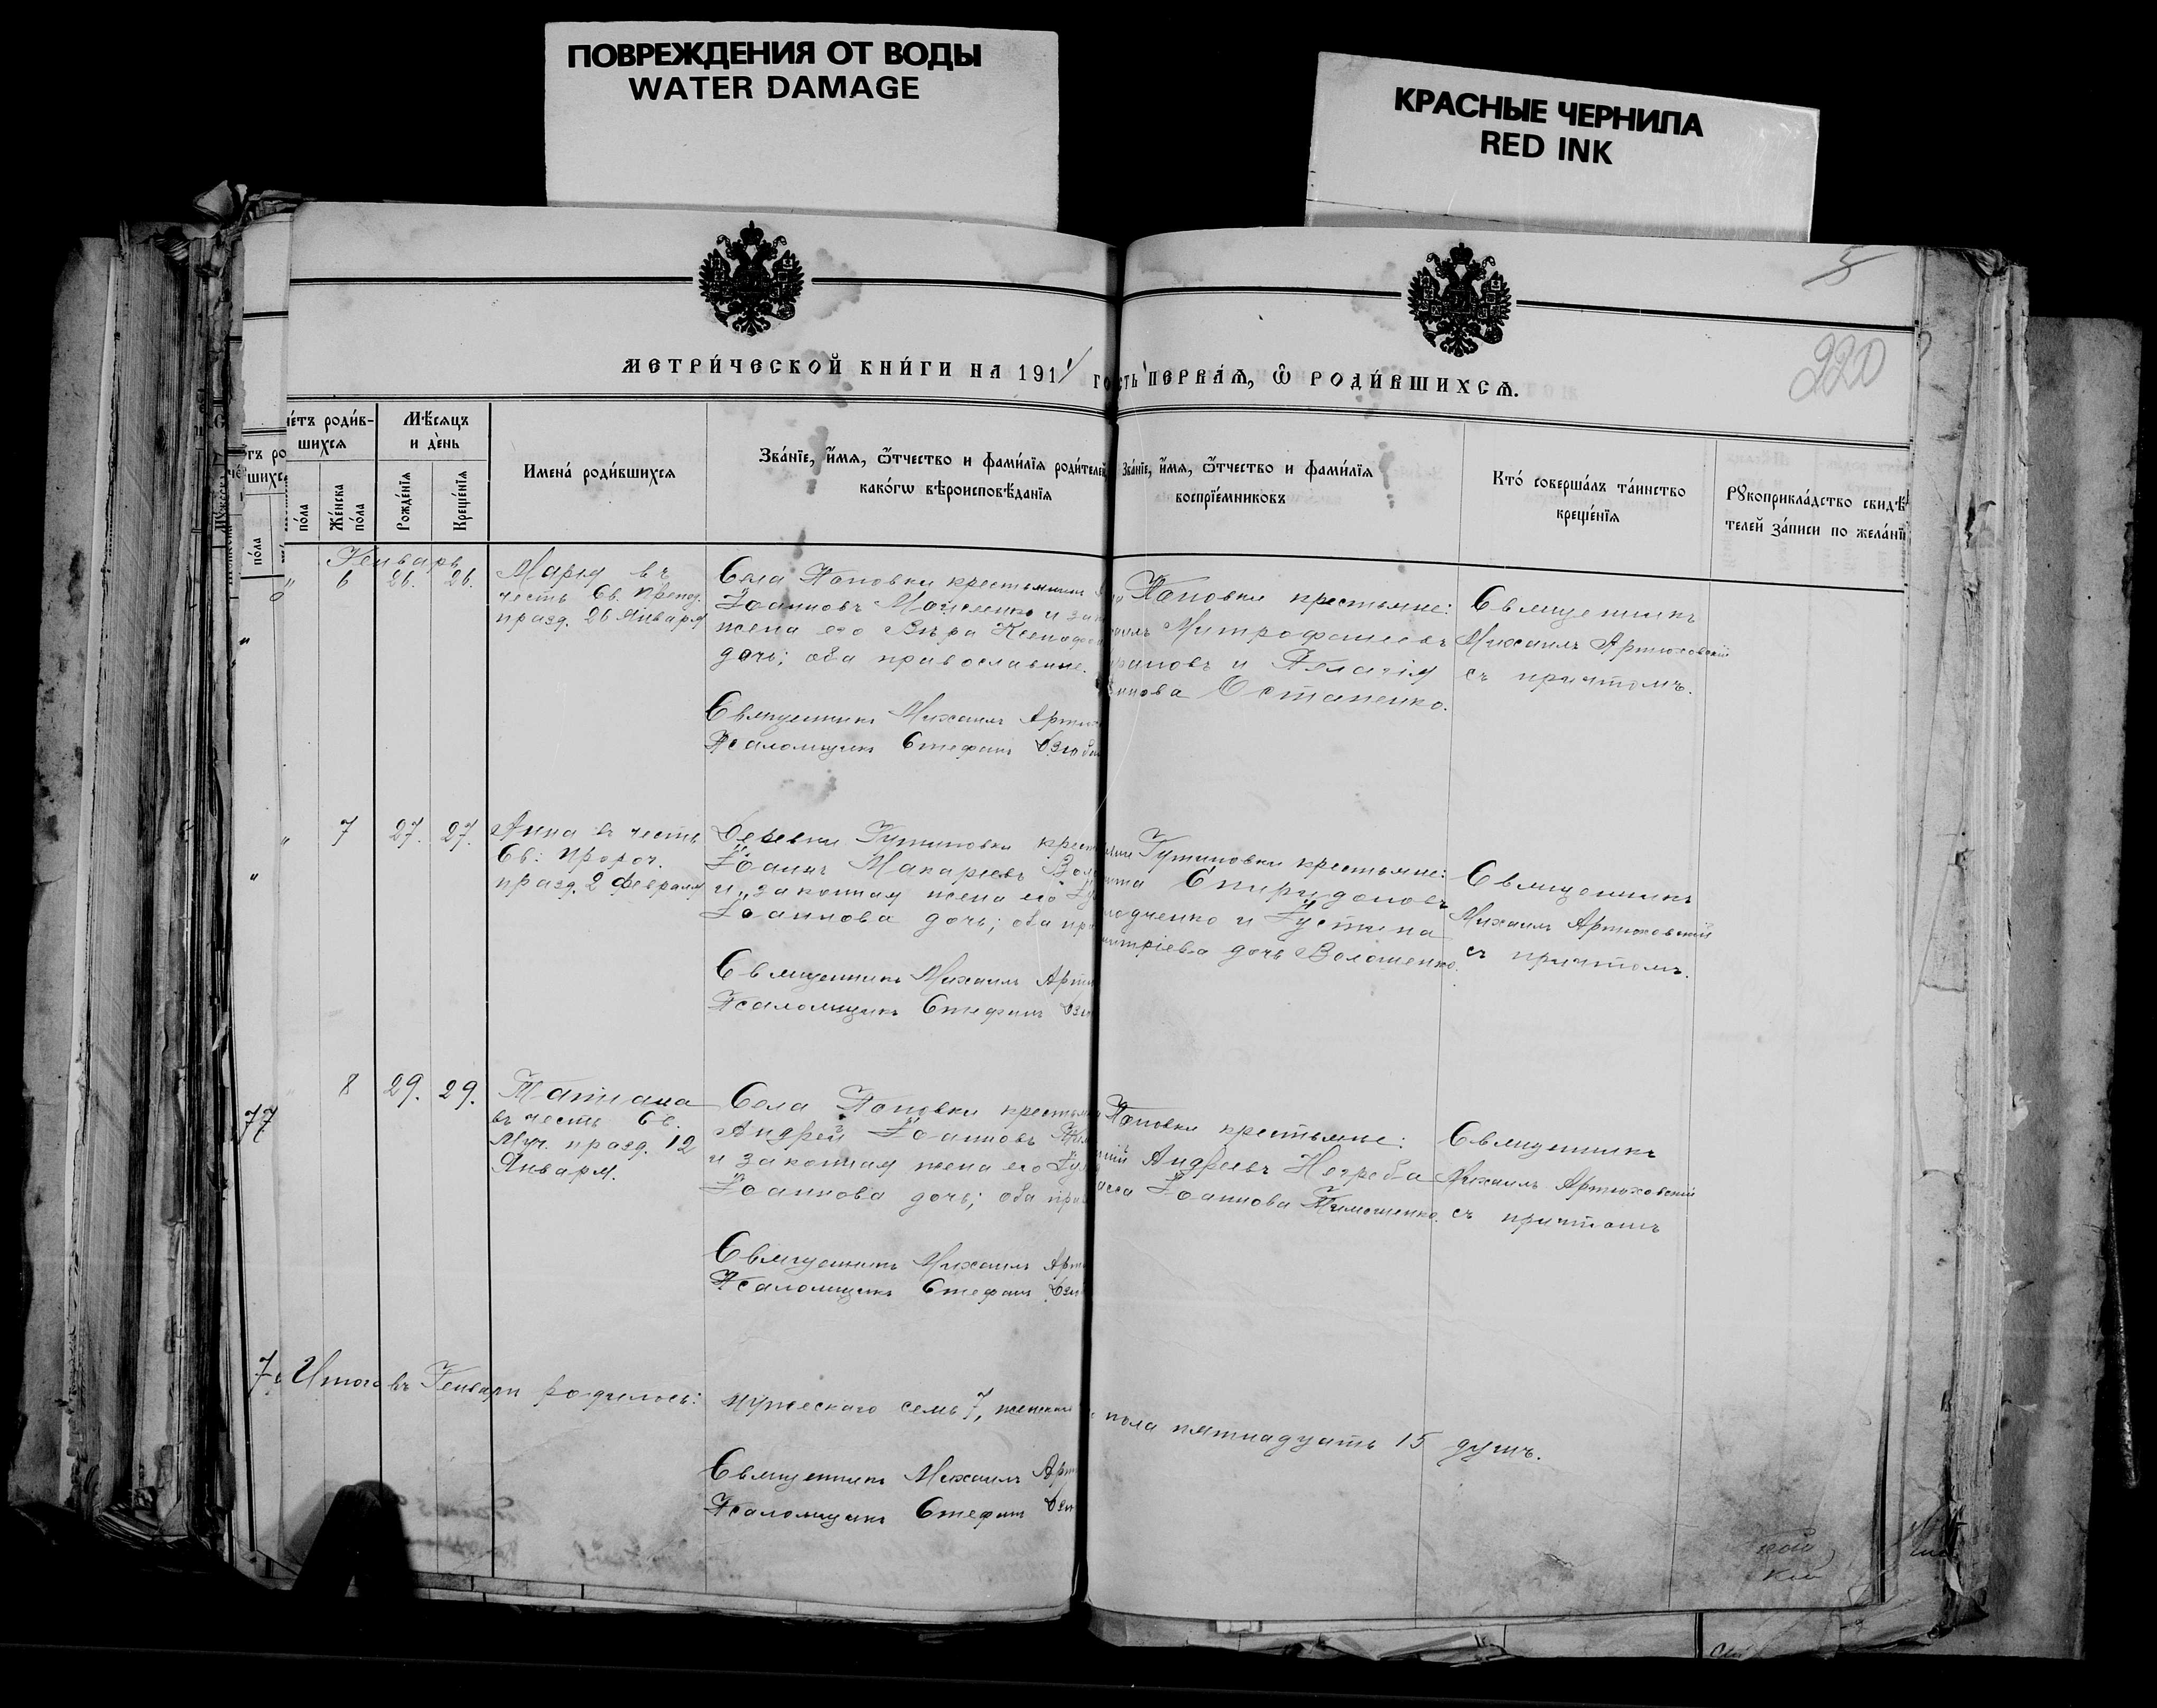 ПОВРЕЖДЕНИЯ ОТ ВОДЫ
WATER DAMAGE
КРАСНЫЕ ЧЕРНИЛА
RED INK
5
220
МЕТРИ́ЧЕСКОЙ КНИ́ГИ НА 1911
СТЬ ПЕРВА́Ѧ, Ѽ РОДИ́ВШИХСѦ.
че́тъ роди́в-
шихсѧ
Мѣ́сѧцъ
и де́нь
по́ла
Же́нска
по́ла
Рожде́нїѧ
Креще́нїѧ
Имена̀ роди́вшихсѧ
Зва́нїе, и́мѧ, ѻ҆́тчество и фами́лїѧ роди́телей
како́гѡ вѣроисповѣ́данїѧ
Зва́нїе, и́мѧ, ѻ҆́тчество и фами́лїѧ
воспрїе́мниковъ
Кто̀ соверша́лъ та́инство
креще́нїѧ
Рꙋкоприкла́дство свидѣ́
телей за́писи по жела́нї
Генварь
" 6 26. 26.
Марія въ
честь Св. Препод.
празд. 26 Января
Села Поповки крестьянин
Іоанновъ Моисеенко и зак
жена его Вѣра
дочь; оба православные.
Священникъ Михаилъ Артюх
Псаломщикъ Стефанъ Дзюб
Поповки крестьяне:
Митрофановъ
и Пелагія
Остапенко.
Священникъ
Михаилъ Артюховскій
съ причтомъ.
" 7 27. 27.
Анна въ честь
Св: Пророч.
празд. 2 Февраля
Деревни Гутировки крест
Іоаннъ Макаріевъ Вол
и законная жена его Іу
Іоаннова дочь; оба пр
Священникъ Михаилъ Артю
Псаломщикъ Стефанъ Дзю
Гутировки крестьяне:
Спиридоновъ
и Іустина
дочь Волошенко.
Священникъ
Михаилъ Артюховскій
съ причтомъ.
" 8 29. 29.
Татіана
въ честь Св.
Муч. празд. 12
Января.
Села Поповки крестьян
Андрей Іоанновъ
и законная жена его Іул
Іоаннова дочь; оба пра
Священникъ Михаилъ Арт
Псаломщикъ Стефанъ Дзю
Поповки крестьяне:
Андреевъ Негреба
Іоаннова Тимошенко.
Священникъ
Михаилъ Артюховскій
съ причтомъ
77
Итого въ Генваре родилось: мужескаго семь 7, женскаго
пола пятнадцать 15 душъ.
Священникъ Михаилъ Арт
Псаломщикъ Стефанъ Дзю